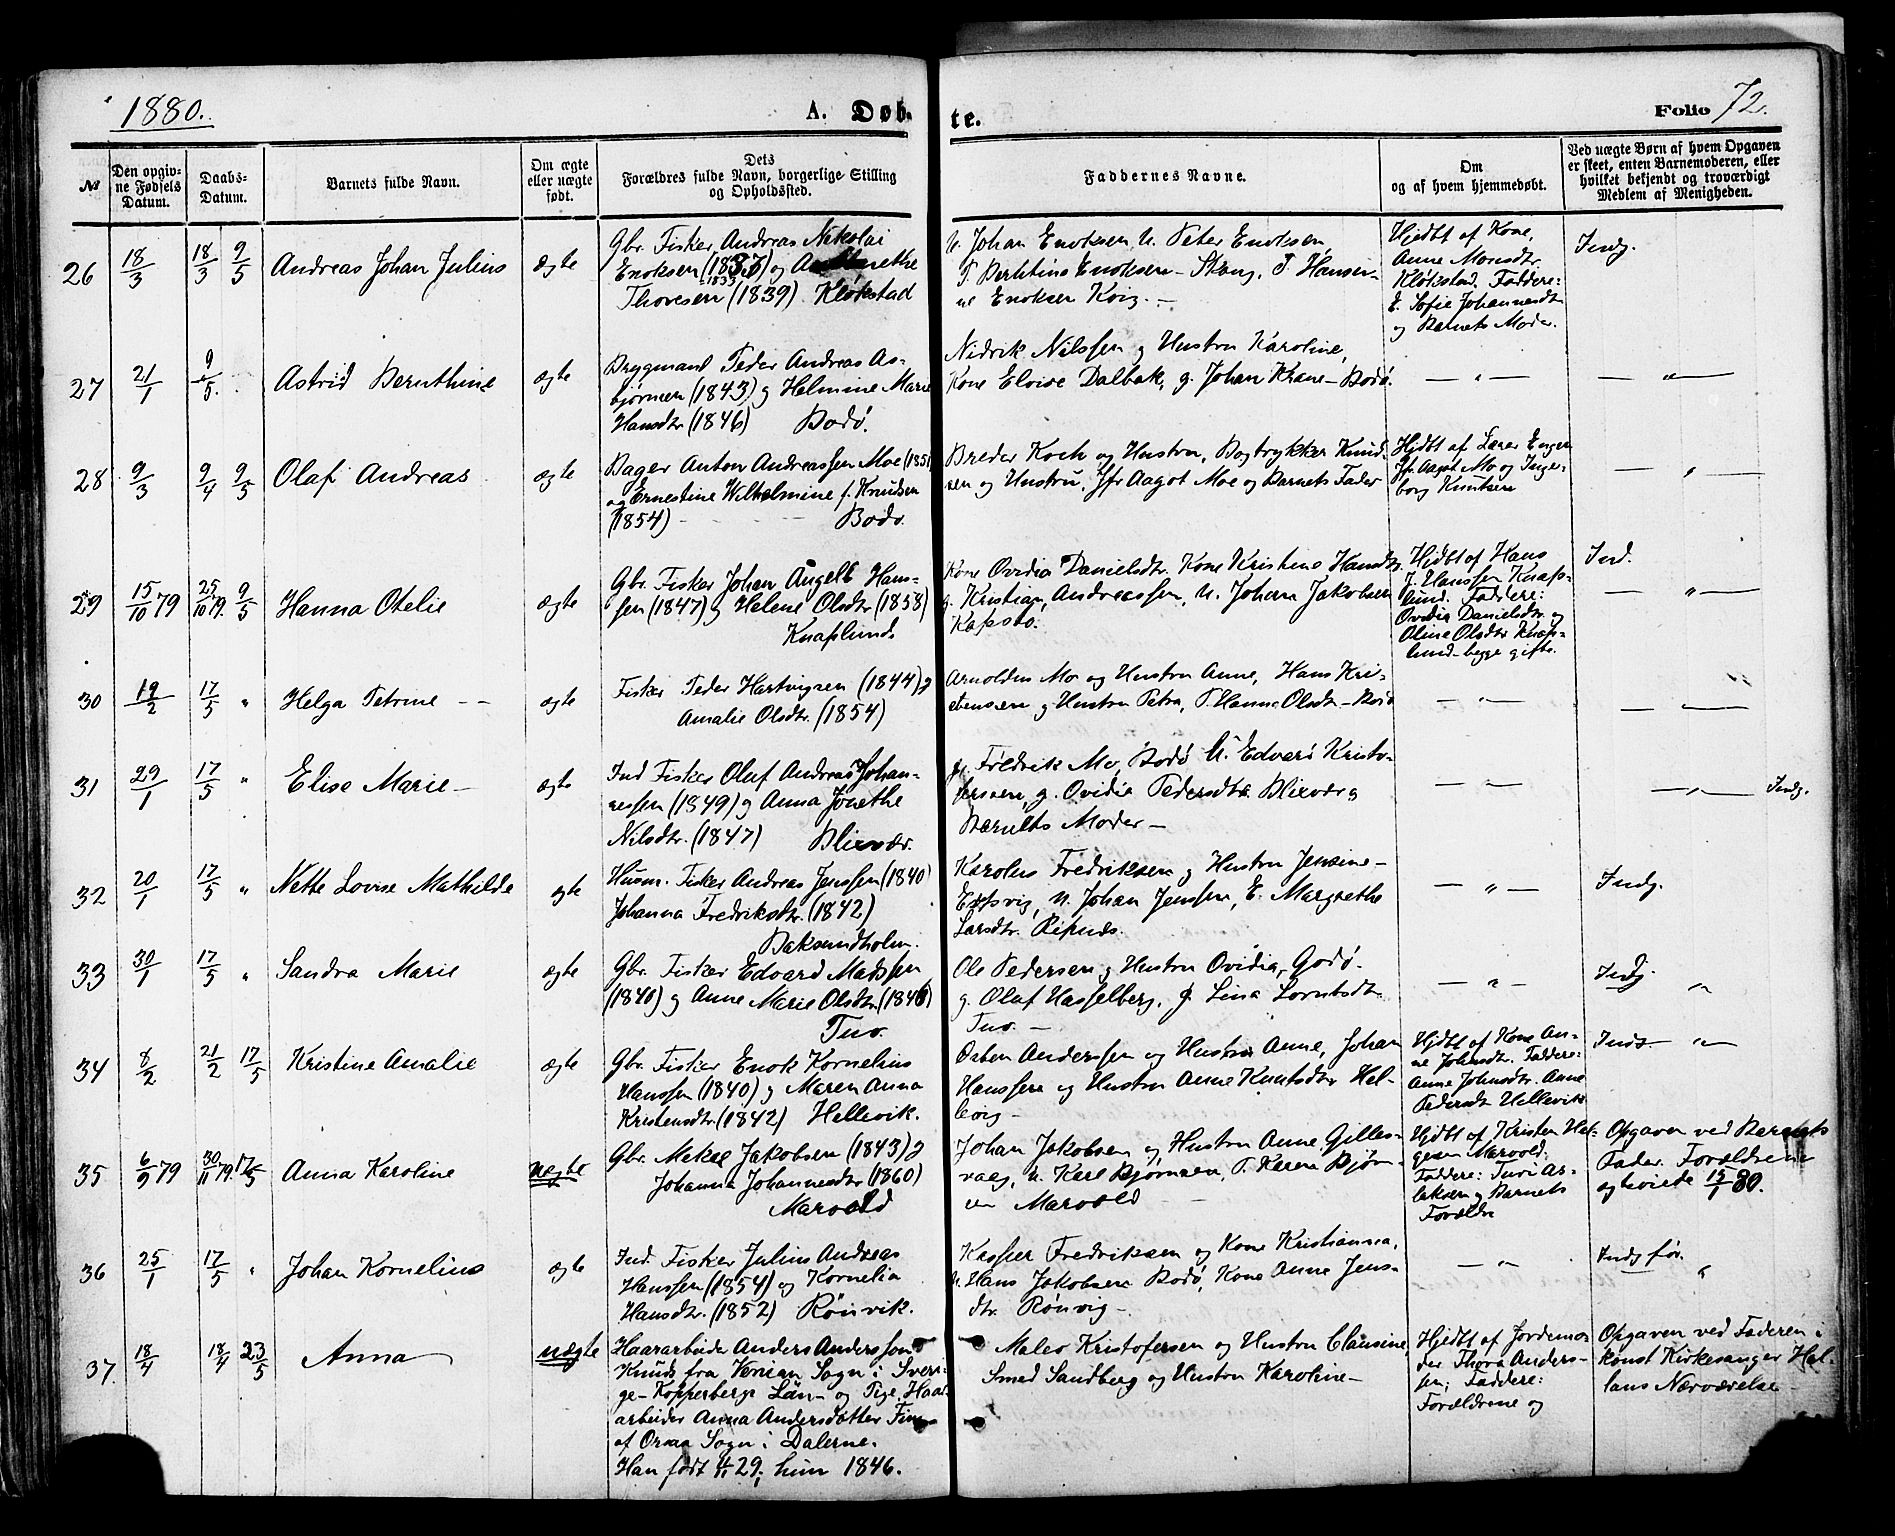 1880.
A. Døb-
te.
Folio 72.
№
Den opgiv-
ne Fødsels
Datum.
Daabs-
Datum.
Barnets fulde Navn.
Om ægte
eller uægte
født.
Dets
Forældres fulde Navn, borgerlige Stilling
og Opholdssted.
Faddernes Navne.
Om
og af hvem hjemmedøbt.
Ved uægte Børn af hvem Opgaven
er skeet, enten Barnemoderen, eller
hvilket bekjendt og troværdigt
Medlem af Menigheden.
26 18/3 18/3 9/5 Andreas Johan Julius ægte
Gbr. Fisker Andreas Nikolai
Enoksen (1833) og
1833
Thoresen (1839) Kløkstad
U. Johan Enoksen, U. Peter Enoksen,
P. Berntine Enoksen - P. Hansi-
ne Enoksen Kvig. -
Hjedbt af Kone,
Anne Monsdtr
Kløkstad. Faddere:
E. Sofie Johannesdtr
og Barnets Moder.
Indg.
27 21/1 9/5. Astrid Bernthine ægte
Brygmand Peder Andreas As-
bjørnsen (1843) og Helmine Marie
Hansdtr (1846) Bodø.
Nidrik Nilssen og Hustru Karoline,
Kone Elvise Dalbak, g. Johan Krane - Bodø.
— " —
— " —
28 9/3 9/4 9/5 Olaf Andreas ægte
Bager Anton Andreassen Moe (1851
og Ernestine Wilhelmine f. Knudsen
(1854) - - - Bodø.
Breder Koch og Hustru, Bogtrykker Knud-
sen og Hustru, Jfr Aagot Moe og Barnets Fader
Hjdbt af Lærer Engen
Jfr. Aagot Mo og Inge-
borg Knutsen
— " —
29 15/10 79 25/10 79. 9/5 Hanna Otelie ægte
Gbr. Fisker Johan Angell Hans-
sen (1847) og Helene Olsdtr (1858)
Knaplund.
Kone Ovidia Danielsdtr. Kone Kristine Hansdtr.
g. Kristian Andreassen, U. Johan Jakobsen
Hjdbt af Hans
J. Hanssen Knap-
lund. Faddere:
Ovidia Danielsdtr. og
Oline Olsdtr Knap-
lund - begge gifte.
Ind.
— " —
30 19/2 17/5 " Helga Petrine - - ægte
Fisker Peder Hartvigsen (1844) og
Amalie Olsdtr. (1854)
Arnoldus Mo og Hustru Anne, Hans Kri-
stensen og Hustru Petra, P. Hanna Olsdtr - Bodø
— " —
— " —
31 29/1 17/5 " Elise Marie - ægte
Ind Fisker Oluf Andreas Johan-
nessen (1849) og Anna Jonethe
Nilsdtr. (1847) Blixvær.
g. Fredrik Mo, Bodø U. Edvard Kristo-
fersen, g. Ovidia Pedersdtr. Blixvær og
Barnets Moder -
— " —
— " — Indg.
32 20/1 17/5 " Nette Lovise Mathilde ægte
Husm. Fisker Andreas Jenssen (1840)
Johanna Fredriksdtr. (1842)
Baksundholm.
Karolus Fredriksen og Hustru Jensine -
U. Johan Jenssen, E. Margrethe
Larsdtr. Ripnæs.
— " —
Indg.
33 30/1 17/5 " Sandra Marie ægte
Gbr. Fisker Edvard Madssen
(1840) og Anne Marie Olsdtr. (1846)
Tuv.
Ole Pedersen og Hustru Ovidia, Godø.
g. Oluf Hasselberg, P. Lina Lorntsdtr
Tuv. -
— " -
Indg. "
34 8/2 21/2 17/5 Kristine Amalie ægte
Gbr. Fisker Enok Kornelius
Hanssen (1840) og Maren Anna
Kristensdtr. (1842) Hellevik.
Osben Anderssen og Hustru Anne, Johan
Hanssen og Hustru Anne Knutsdtr Hel-
levig -
Hjdbt af Kone An-
ne Johnsdtr. Faddere:
Anne Johnsdtr. Anne
Pedersdtr Hellevik
Indg. - " -
35 6/9 79 30/11 79. 17/5 Anna Karoline uægte
Gbr. Mekal Jakobsen (1843) og
Johanna Johannesdtr. (1860)
Marvold
Johan Jakobsen og Hustru Anne Gilles-
vaag, U. Karl Bjørnsen, P. Karen Bjørn-
sen Marvold -
Hjdbt af Kristen Hel-
gesen Marvold:
Faddere: Turi As-
laksen og Barnets
Forældre
Opgaven ved Barnets
Fader. Forældrene
egteviede 15/1 80.
36 25/1 17/5 " Johan Kornelius ægte
Ind. Fisker Julius Andreas
Hanssen (1854) og Kornelia
Hansdtr. (1852) Rønvik.
Kasper Fredriksen og Kone Kristianna,
U. Hans Jakobsen Bodø, Kone Anne Jens-
dtr. Rønvig -
— " —
Indg før. "
37. 18/4 18/4 23/5 Anna uægte
Haararbeider Anders Andersson
Knuds fra Venjan Sogn i Sverri-
ge - Kopperbergs Län - og Pige, Haar-
arbeider Anna Andersdotter Finn
af Orsaa Sogn i Dalerne.
Han født 29; hun 1846.
Maler Kristofersen og Hustru Clausine,
Smed Sandberg og Hustru Karoline -
Hjedbt af Jordemo-
der Thora Anders-
sen; Faddere:
Forældrene og
Opgaven ved Faderen i
konst Kirkesanger Hal-
lans Nærværelse -